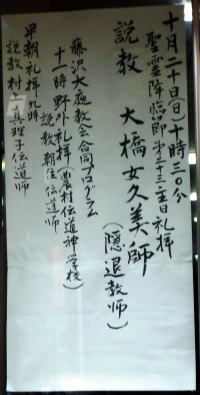 十月二十日(日)十時三〇分
聖霊降臨節第二十三主日礼拝
説教 大橋女久美師
(隠退教師)
藤沢大庭教会合同プログラム
十一時野外礼拝(農村伝道神学校)
説教 朝住伝道師
早朝礼拝九時
説教 村上真理子伝道師